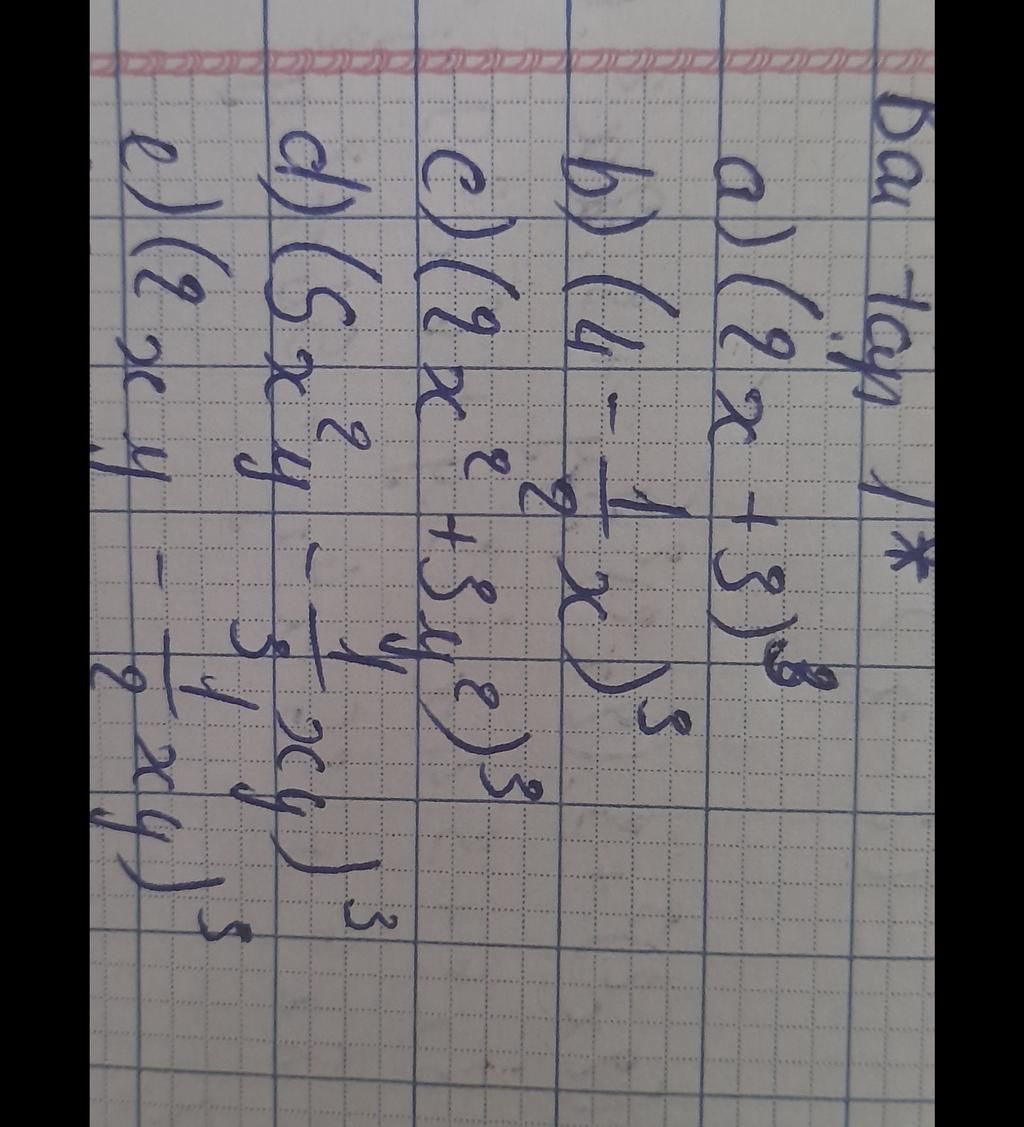 Bài tập 1*
a) (2x + 3)³
b) (4 - 1/2 x)³
c) (2x² + 3y²)³
d) (5x²y - 1/3 xy)³
e) (2xy - 1/2 xy)³